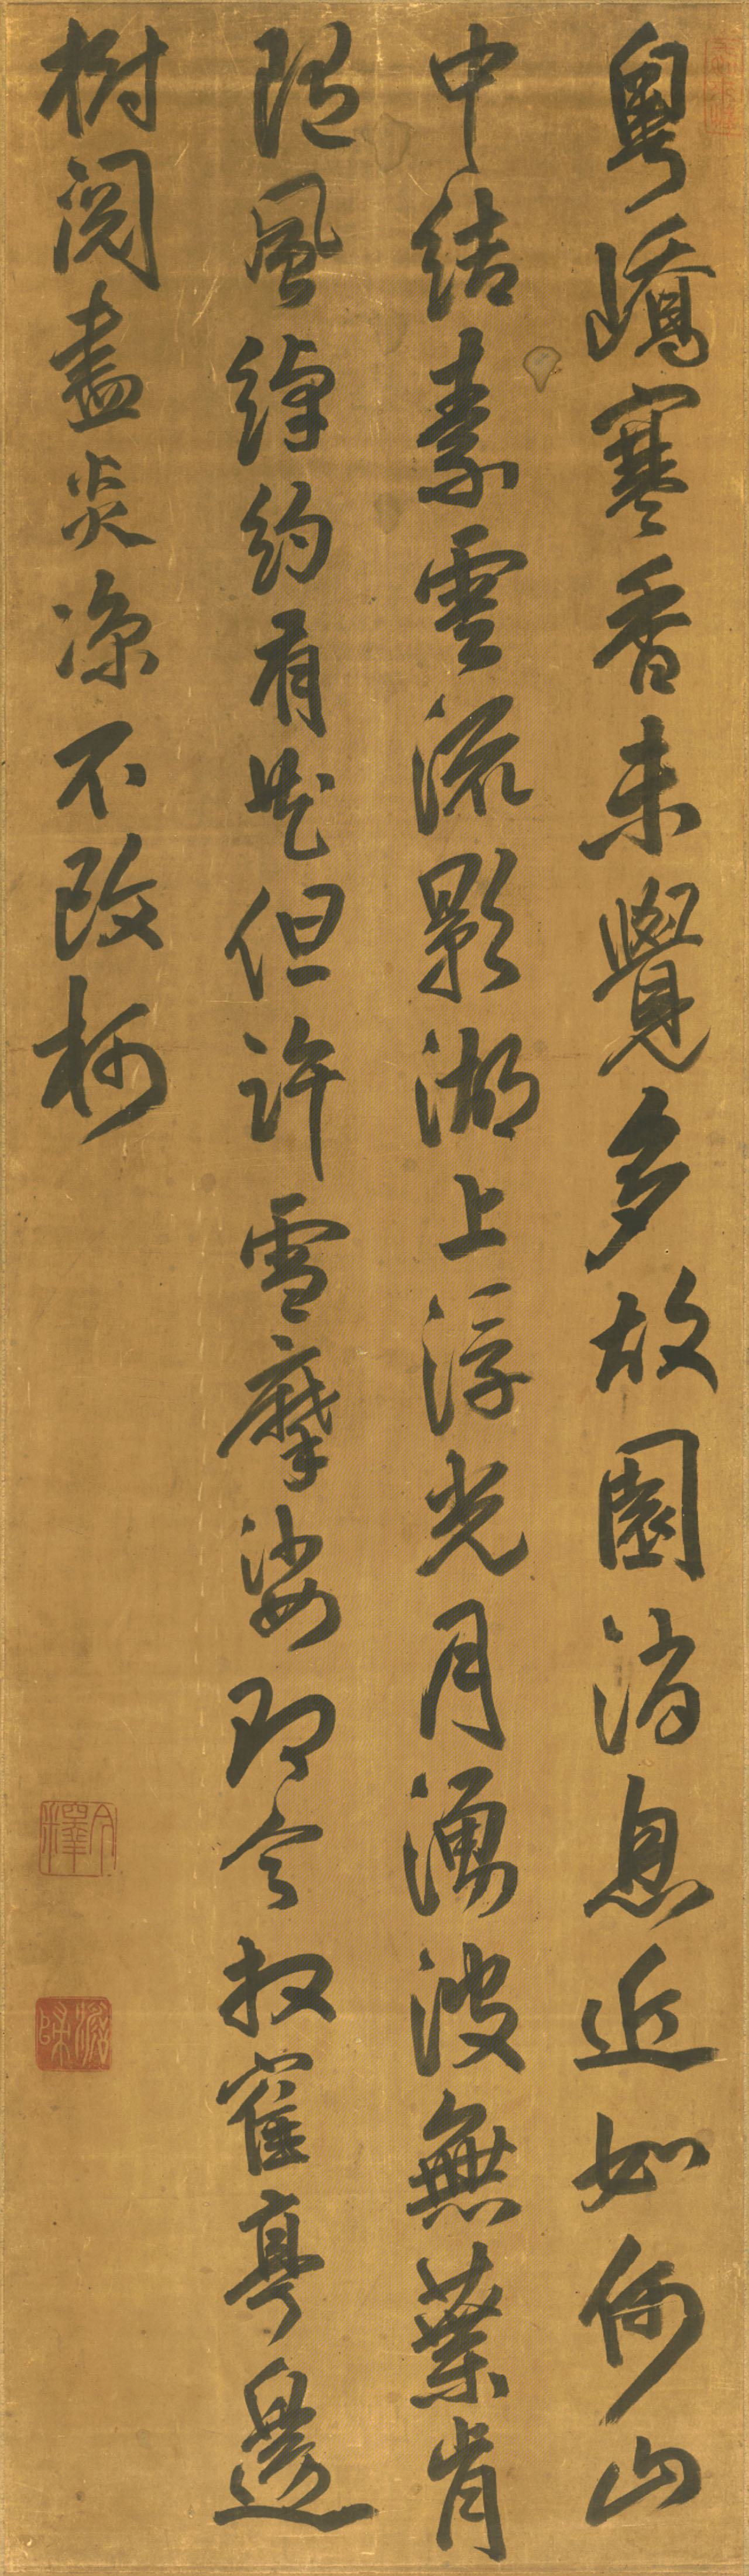 粵嶠寒香未覺多故園消息近如何山
中結素雲流影湖上浮光月湧波無葉肯
隨風綽約有花但許雪摩娑即今放寉亭邊
樹閱盡炎涼不改柯
今釋
澹歸